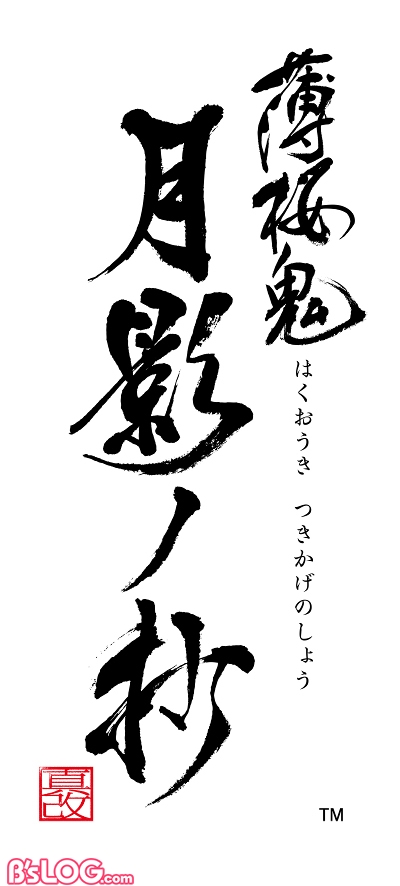 薄桜鬼
はくおうき つきかげのしょう
月影ノ抄
真改
TM
B'sLOG.com